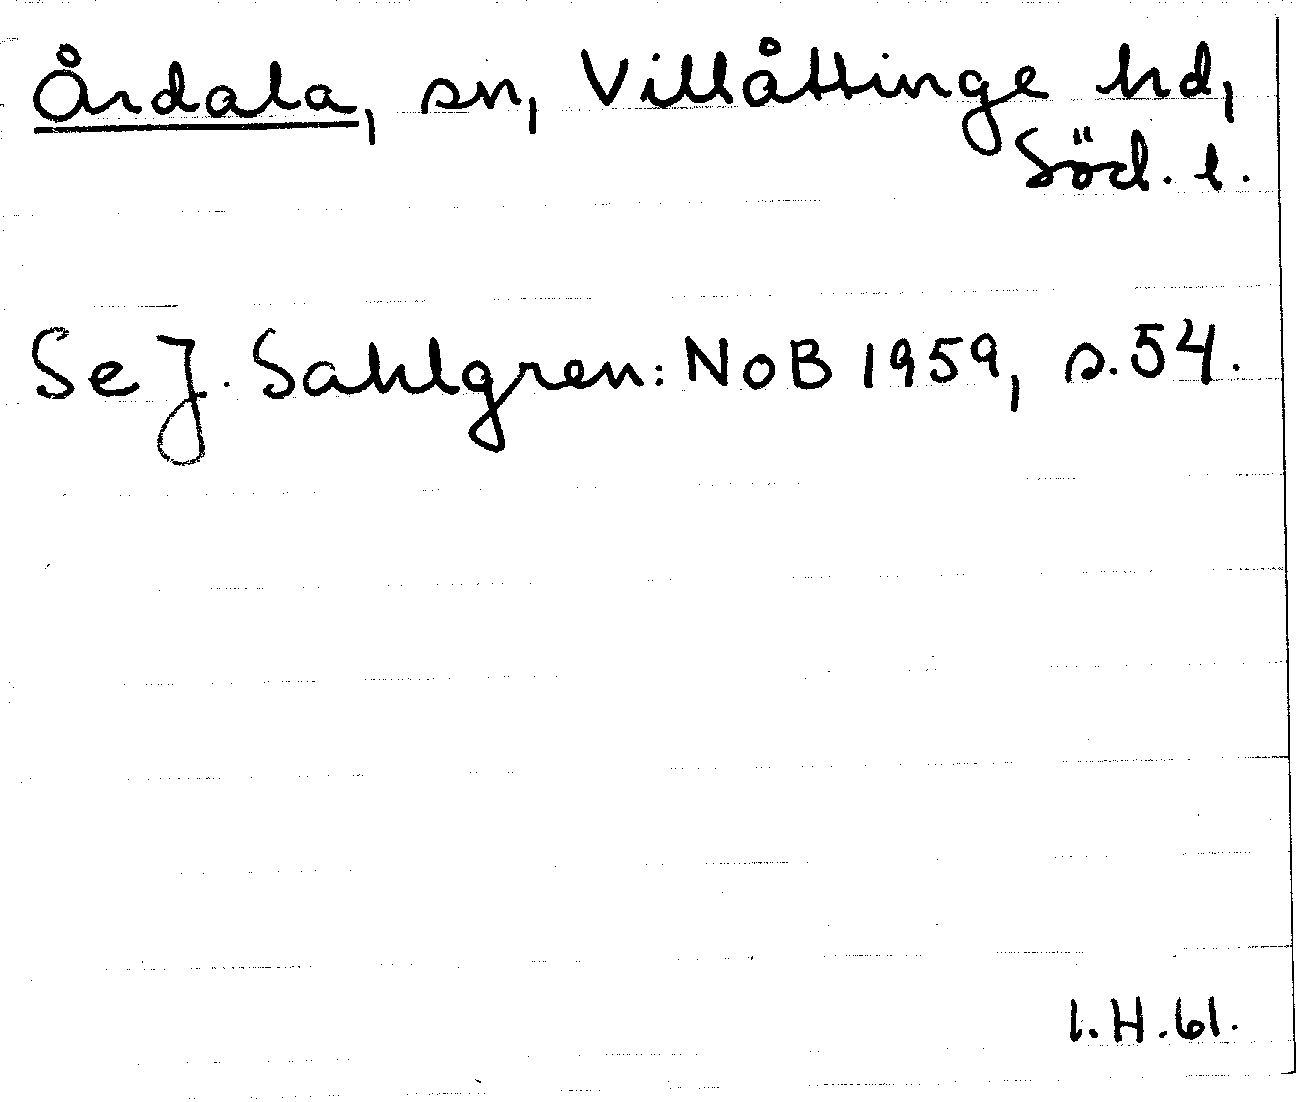 Årdala, sn, Villåttinge hd,
Söd. l.
Se J. Sahlgren: NoB 1959, s. 54.
l. H. 61.